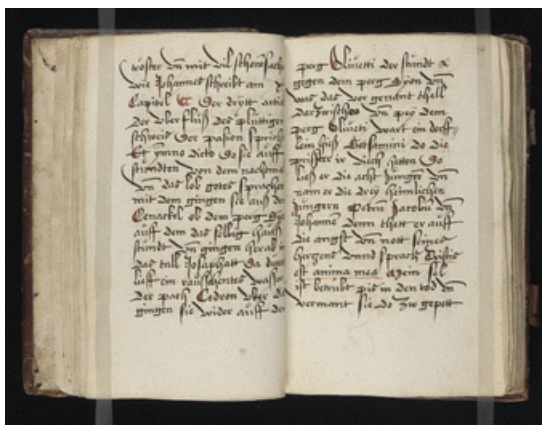 troster vn mit vil schonen sach
wie Johannes schreibt am
Capitel Der drytt artic
der vber fluß des pluttigen
schweis Der pasion sprich
Et ymno dicto Do sie auff
stundten von dem nachtma
vn das lob gotes sprachen
mit dem gingen sie auß de
Cenackel ob dem perg Sy
auff dem das selbig hauß
stundt vn gingen herab in
das tall Josaphatt Da durch
lieff ein rauschentes wasser
der pach Cedron vber de
gingen sie wider auff den
perg Oliueti der stundt
gegen dem perg Syon vn
was das vor genant thell
dar zwischen vn pey dem
perg Oliueti wart ein dorff
lein hiß Getsamini do die
prister ir viech hetten Do
ließ er die acht Jungern vn
nam er die drey heimlichen
Jungern Petrum Jacobum vn
Johannem Denn thett er auff
die angst vn nott seines
hertzens vnnd sprach Tristis
est anima mea Mein sel
ist betrubt piß in den tod vn
vermant sie do zw gepett